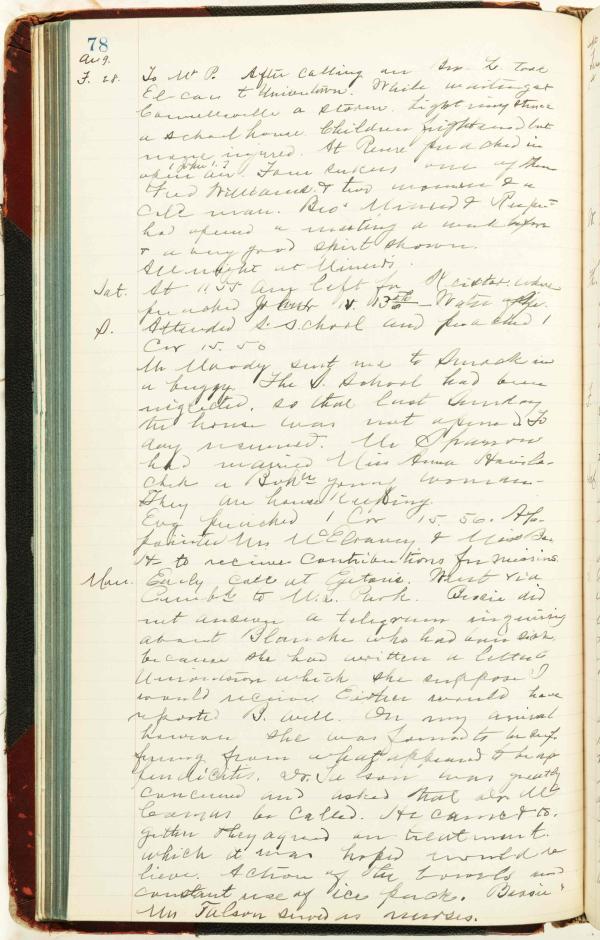 78
Aug.
F. 28. To Mt P. After calling on Mr L took
El-cars to Uniontown. While waiting at
Connellsville a storm. Lightning struck
a school house. Children frightened but
none injured. At Revere preached in
open air. Four seekers one of them
Fred Williams & two women & a
Col man. Bro's Minerd &
had opened a meeting a week before
& a very good spirit shown.
All night at Minerd's.
Sat. At 11.55 Aug left for where
preached John Water
S. Attended S. School and preached 1
Cor 15.50
Mr Moody sent me to in
a buggy. The S. School had been
neglected, so that last Sunday
the house was not opened. To
day resumed. Mr Sparrow
had married Miss Anna
a young woman.
They are house keeping.
Evg preached 1 Cor 15.56. Ap-
pointed Mrs McElravey & Miss
to receive contributions for missions.
Mon. Early call at. Went via
Cumb'l to Mt. L. Park. Bessie did
not answer a telegram inquiring
about Blanche who had been sick
because she had written a letter to
Uniontown which she supposed I
would receive. Either would have
reported B. well. On my arrival
however she was found to be suf-
fering from what appeared to be ap-
pendicitis. Dr. was greatly
concerned and asked that Dr. Mc
Comas be called. He came & to-
gether they agreed on treatment
which it was hoped would re
lieve. Action of the bowels and
constant use of ice pack. Bessie &
Mrs served as nurses.